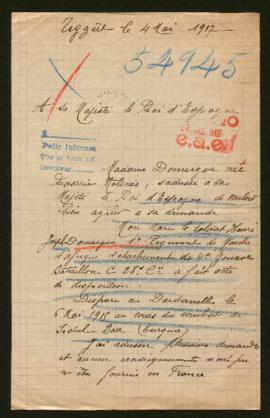 le 4 Mai 1917
54945
A Sa Majesté le Roi d'Espagne
Pedir Informes
Que se haga así
Devolver
Madame Domergue née
s'adresse à Sa
Majesté le Roi d'Espagne de vouloir
bien agréer a sa demande
Mon mari le soldat Henri
Joseph Domergue 1er Régiment de Marche
d'afrique détachement du 4e Zouave
Bataillon C 28e Cie a fait acte
de disparition.
Disparu au Dardanelle le
6 Mai 1915 au cours du combat de
(Turquie)
J'ai adressé plusieurs demandes
et aucun renseignements n'ont pu
m'être fournis en France